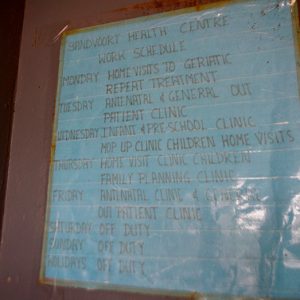 SANDVOORT HEALTH CENTRE
WORK SCHEDULE
MONDAY HOME VISITS TO GERIATIC
REPEAT TREATMENT
TUESDAY ANTENATAL & GENERAL OUT
PATIENT CLINIC
WEDNESDAY INFANT & PRE-SCHOOL CLINIC
MOP UP CLINIC CHILDREN HOME VISITS
THURSDAY HOME VISIT CLINIC CHILDREN
FAMILY PLANNING CLINIC
FRIDAY ANTINATAL CLINIC &
OUT PATIENT CLINIC
SATURDAY OFF DUTY
SUNDAY OFF DUTY
HOLIDAYS OFF DUTY